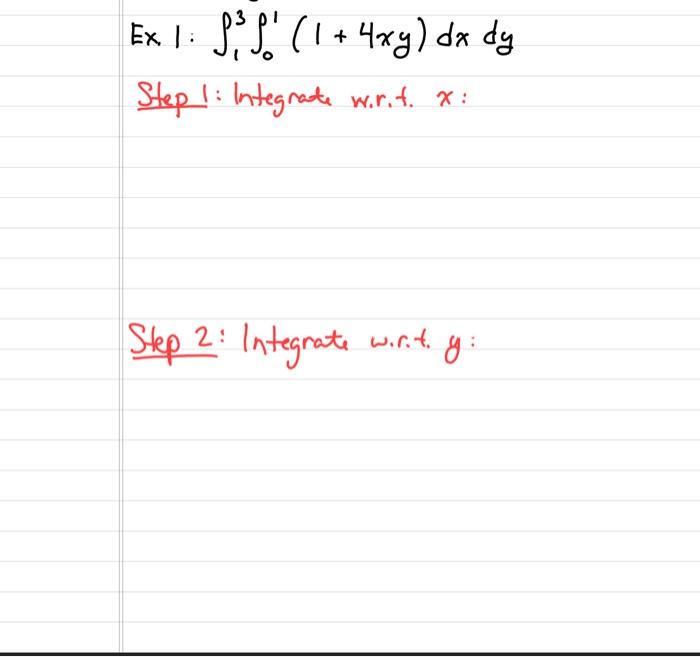 Ex. 1: ∫₁³ ∫₀¹ (1 + 4xy) dx dy
Step 1: Integrate w.r.t. x:
Step 2: Integrate w.r.t. y: